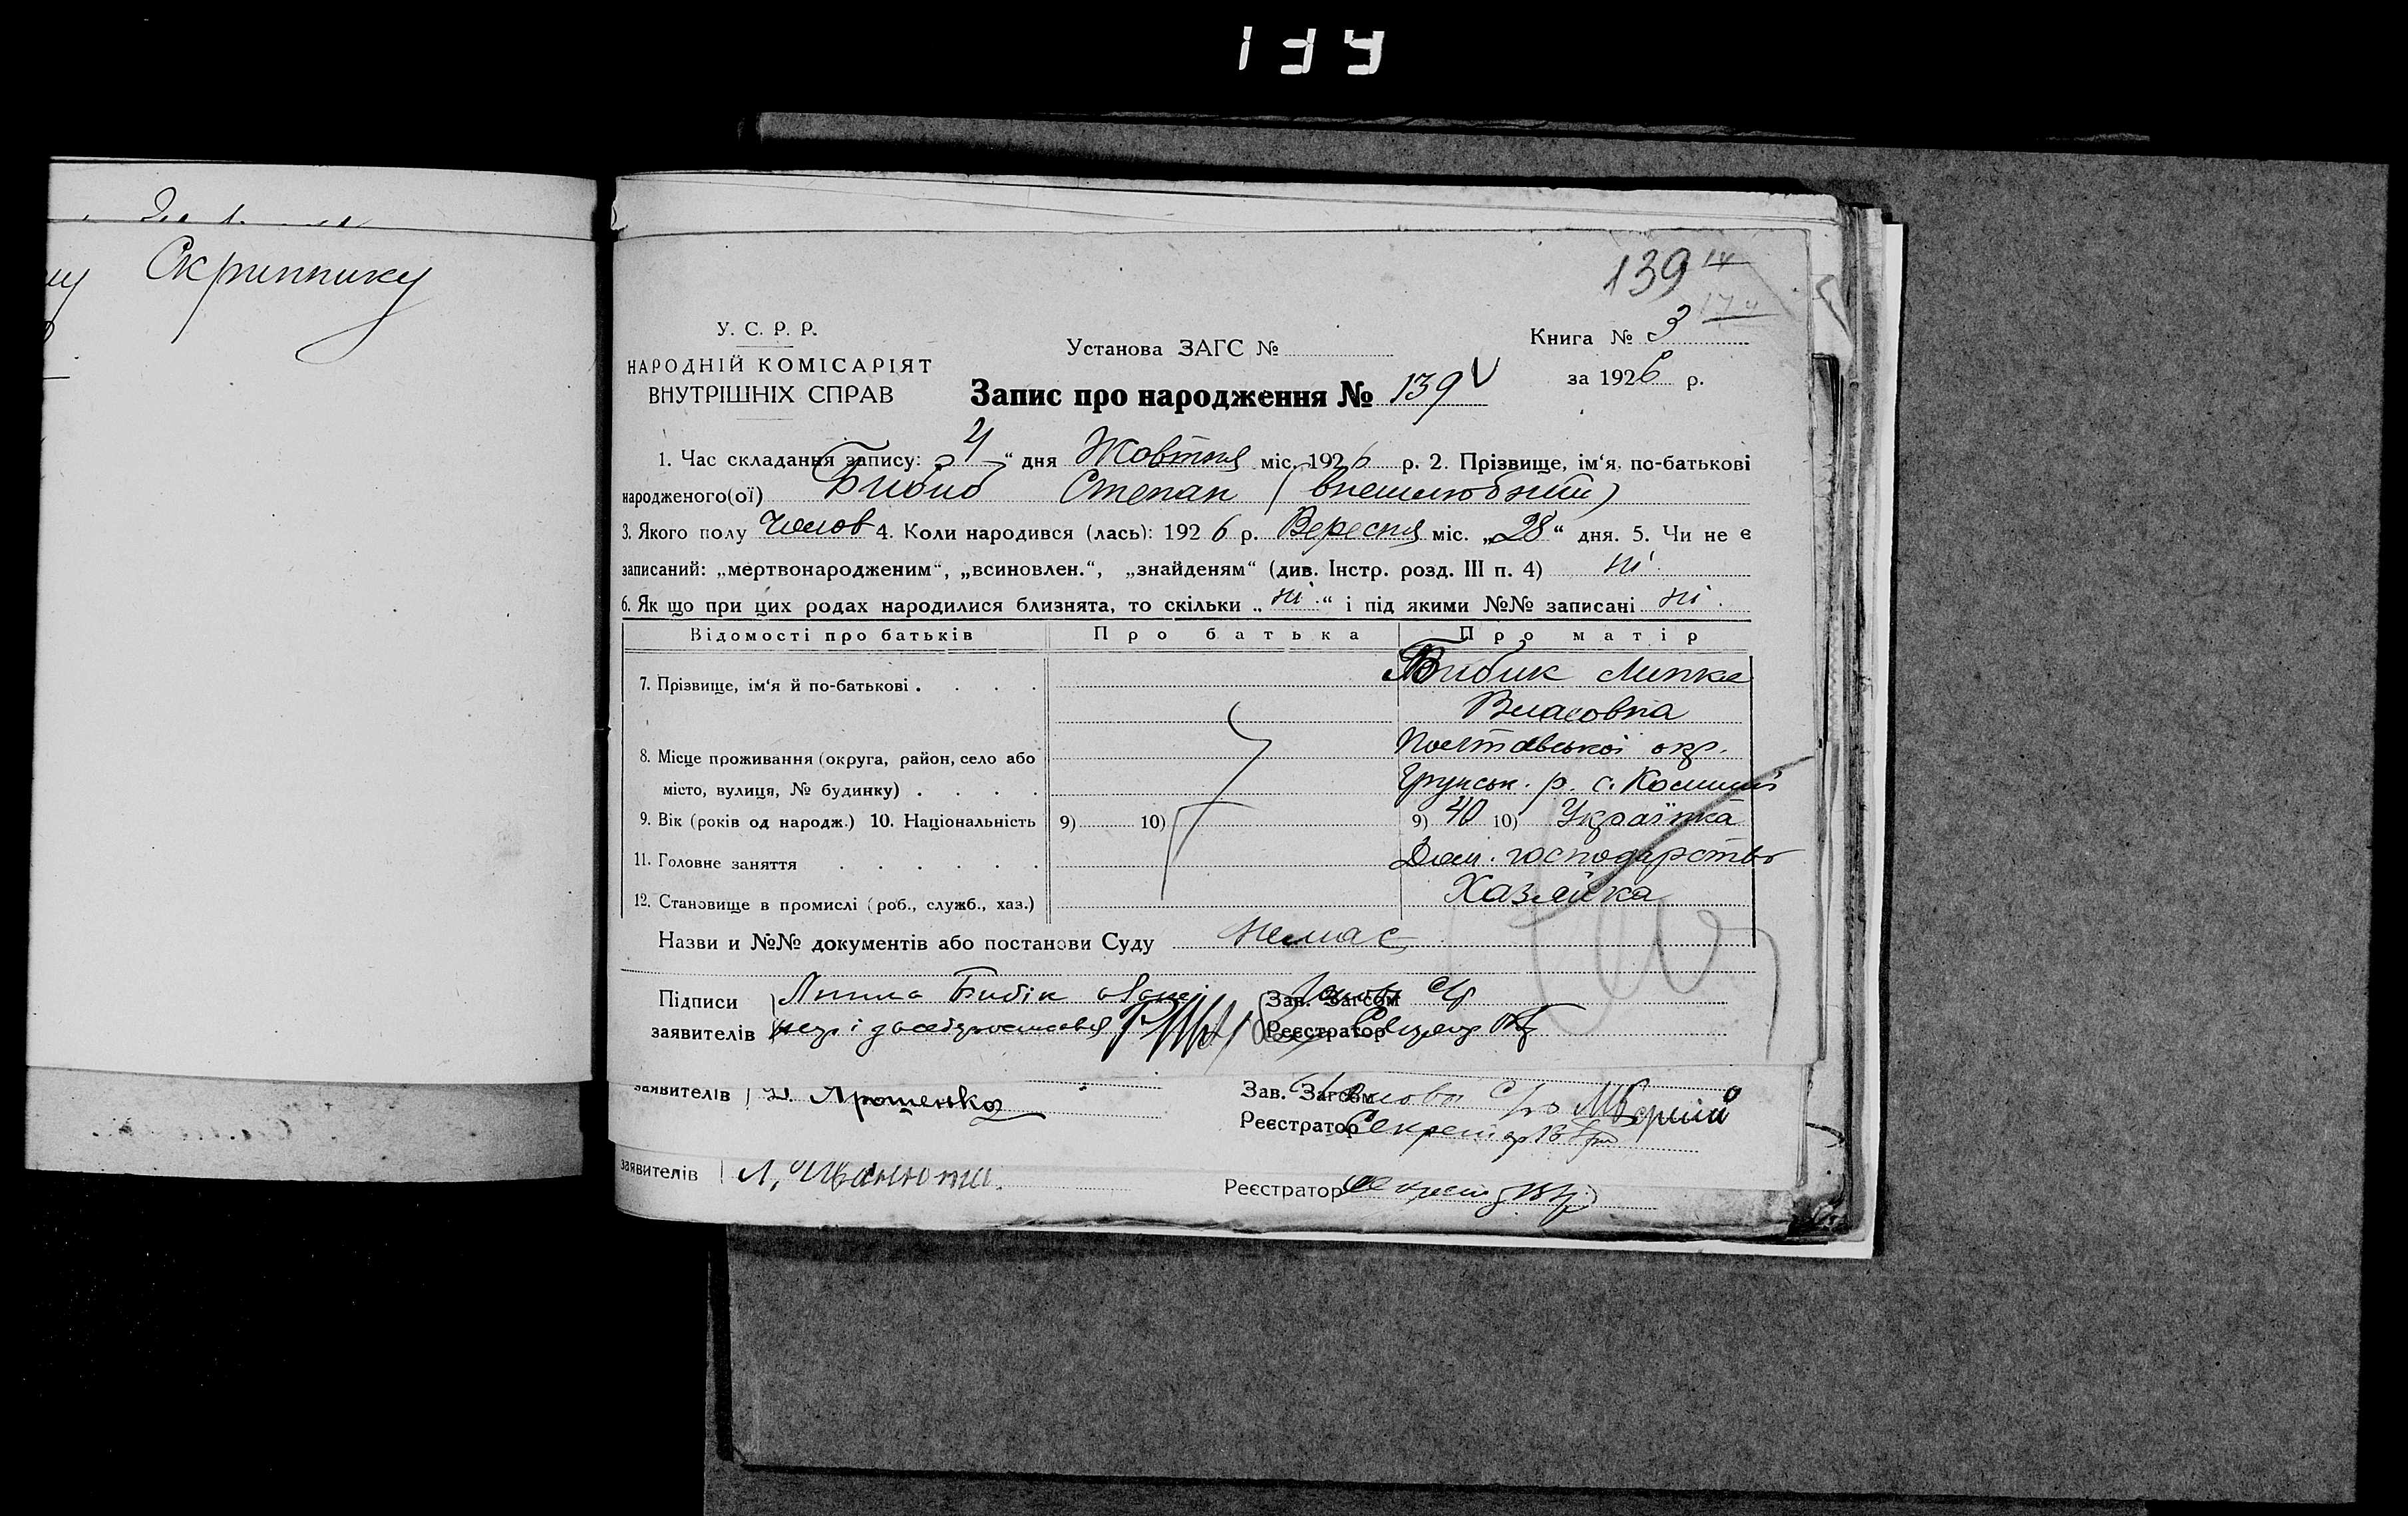 139
Скриннику
139
У. С. Р. Р.
НАРОДНІЙ КОМІСАРІЯТ
ВНУТРІШНІХ СПРАВ
Установа ЗАГС №
Книга № 3
за 1926 р.
Запис про народження № 139
1. Час складання запису: „4“ дня Жовтня міс. 1926 р. 2. Прізвище, ім‘я, по-батькові
народженого(ої) Степан
3. Якого полу Чолов 4. Коли народився (лась): 1926 р. Вересня міс. „28“ дня. 5. Чи не є
записаний: „мертвонародженим“, „всиновлен.“, „знайденям“ (див. Інстр. розд. III п. 4) ні.
6. Як що при цих родах народилися близнята, то скільки „ні.“ і під якими №№ записані ні.
Відомості про батьків Про батька Про матір
7. Прізвище, ім‘я й по-батькові . . . . Бибик
Власовна
8. Місце проживання (округа, район, село або Полтавської окр.
місто, вулиця, № будинку) . . . . Грунськ. р. с.
9. Вік (років од народж.) 10. Національність 9) 10) 9) 40 10) Українка
11. Головне заняття . . . . . . Дом. господарство
12. Становище в промислі (роб., служб., хаз.) Хазяйка
Назви и №№ документів або постанови Суду немає
Підписи Бибік Зав. Загсом
заявителів Реєстратор
заявителів Ярошенко Зав. Загсом Голова
Реєстратор Секретар
заявителів Л. Реєстратор